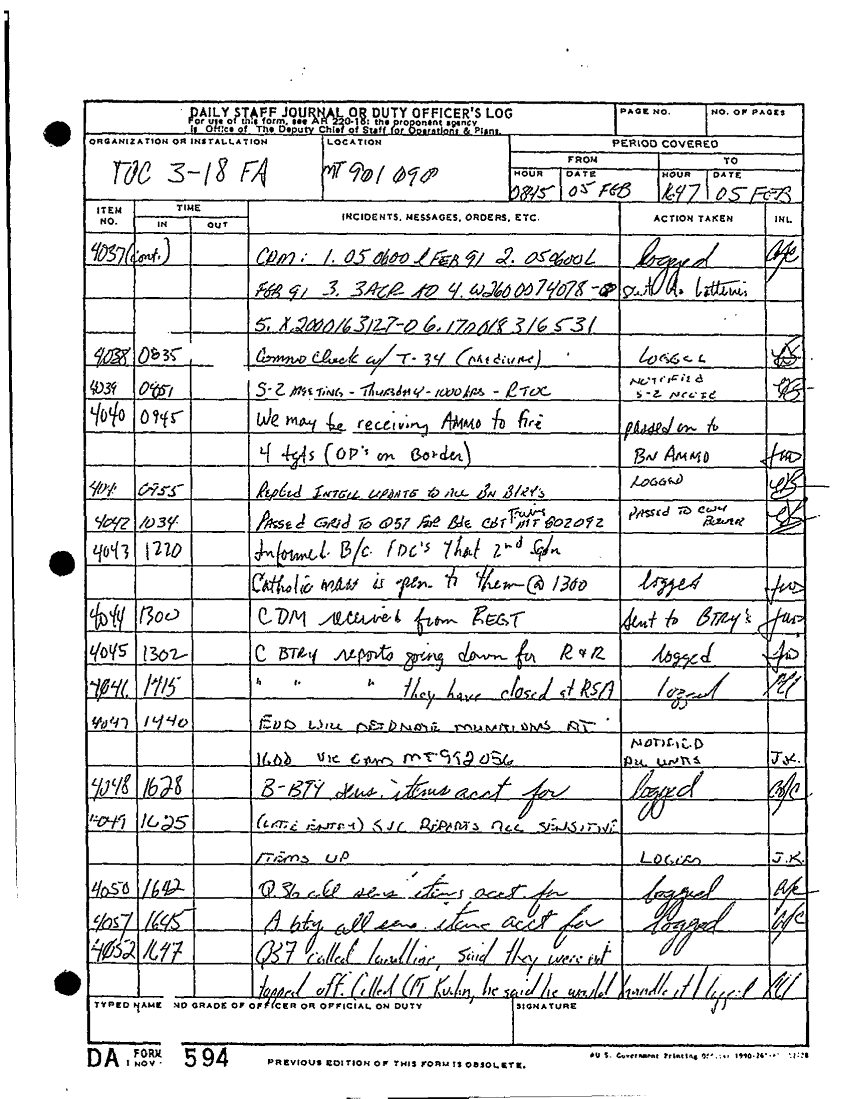 DAILY STAFF JOURNAL OR DUTY OFFICER'S LOG
For use of this form, see AR 220-15; the proponent agency
is Office of The Deputy Chief of Staff for Operations & Plans.
PAGE NO.
NO. OF PAGES
ORGANIZATION OR INSTALLATION
TOC 3-18 FA
LOCATION
MT 901 090
PERIOD COVERED
FROM
TO
HOUR
DATE
HOUR
DATE
0845
05 FEB
1647
05 FEB
ITEM NO.
TIME
IN
OUT
INCIDENTS, MESSAGES, ORDERS, ETC.
ACTION TAKEN
INL.
4037 (cont.) CDM: 1. 050600 L FEB 91 2. 050600L logged
FEB 91 3. 3ACR AO 4. W2600074078-0 sent to batteries
5. X.2000163127-0 6. 170018316531
4038 0835 Commo check w/ T-34 (medium) LOGGED
4039 0851 S-2 MEETING - THURSDAY - 1000 HRS - RTOC NOTIFIED
S-2
4040 0945 We may be receiving AMMO to fire passed on to
4 tgts (OP's on Border) BN AMMO
0955 INTELL UPDATE TO ALL BN BTRY'S LOGGED
4042 1034 PASSED GRID TO Q57 FOR Bde CBT Trains MT 802092 PASSED TO
4043 1220 Informed B/C FDC's That 2nd Sqdn
Catholic mass is open to them @ 1300 logged
4044 1300 CDM received from REGT sent to BTRY's
4045 1302 C BTRY reports going down for R & R logged
1415 " " " they have closed at RSA logged
4047 1440 EOD WILL DETONATE MUNITIONS AT
1600 VIC MT 992056 NOTIFIED
ALL UNITS J.K.
4048 1628 B-BTY sens. items acct for logged
4049 1625 (LATE ENTRY) SVC REPORTS ALL SENSITIVE
ITEMS UP LOGGED J.K.
4050 1642 Q36 all sens items acct for logged
1645 A bty all sens. items acct for logged
4052 1647 Q37 called landline, said they were not
topped off. Called CPT Kuhn, he said he would handle it logged
TYPED NAME AND GRADE OF OFFICER OR OFFICIAL ON DUTY
SIGNATURE
DA FORM 1 NOV 594
PREVIOUS EDITION OF THIS FORM IS OBSOLETE.
U.S. Government Printing Office: 1990